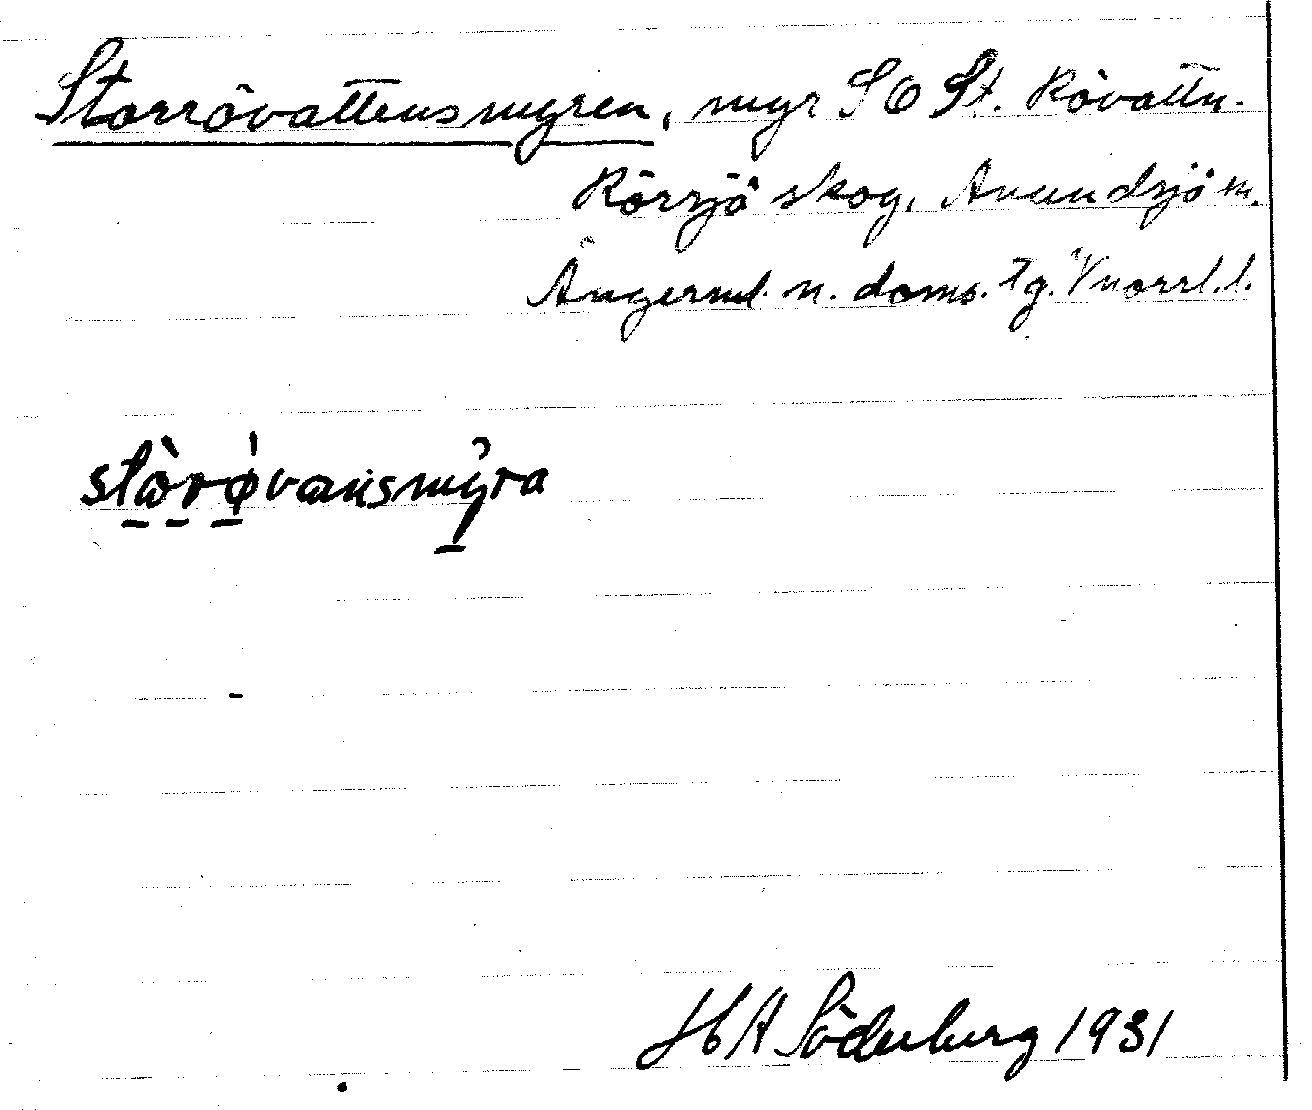 Storrövattensmyren, myr SO St. Rövattn.
Rörsjö skog, Anundsjö sn.
Ångerml. n. doms. tg. Vnorrl. l.
stòrǿvansmỳra
HA Söderberg 1931